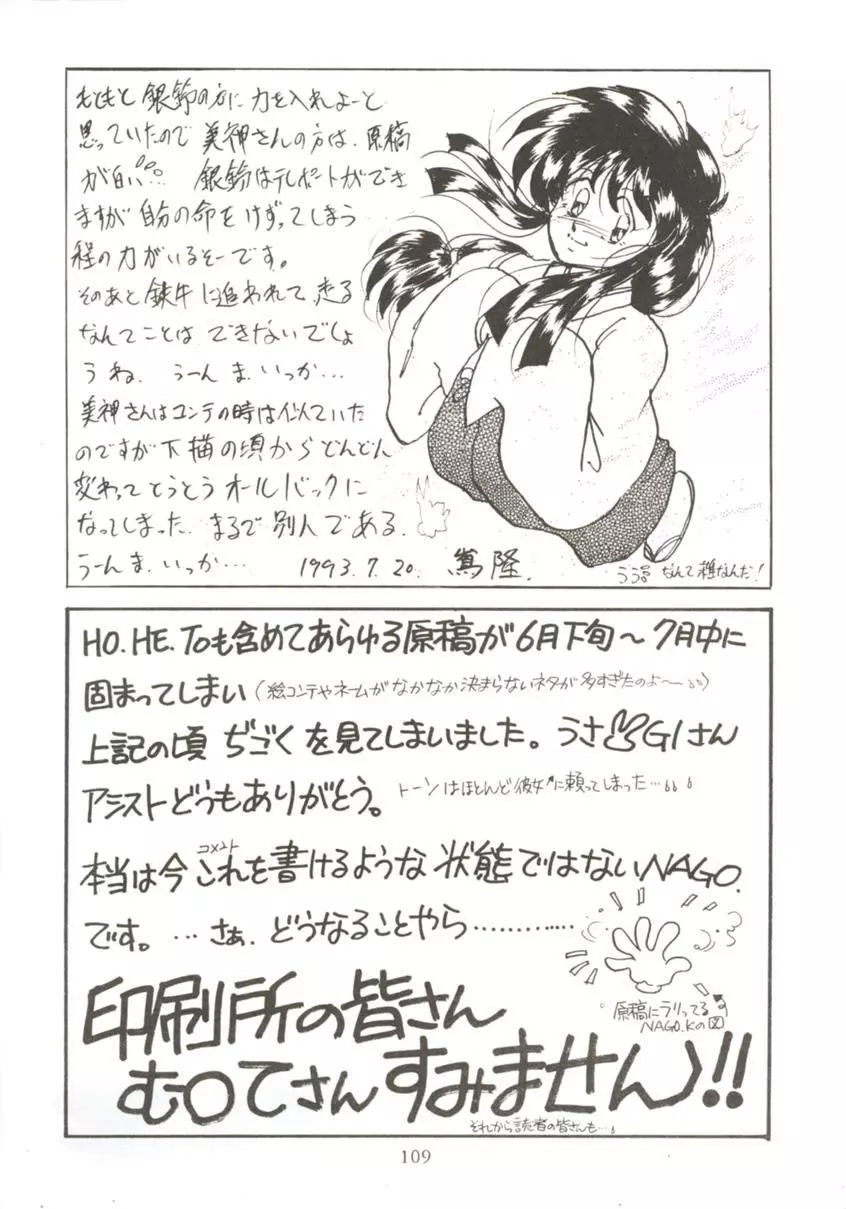 もともと銀鈴の方に力を入れよーと
思っていたので美神さんの方は、原稿
が白い… 銀鈴はテレポートができ
ますが自分の命をけずってしまう
程の力がいるそーです。
そのあと鉄牛に追われて、走る
なんてことは できないでしょ
うね. うーん ま.いっか…
美神さんはコンテの時は似ていた
のですが下描の頃からどんどん
変わってとうとうオールバックに
なってしまった. まるで別人である.
うーん ま.いっか… 1993.7.20. 嵩隆.
なんて雑なんだ!
HO.HE.Toも含めてあらゆる原稿が6月下旬〜7月中に
固まってしまい(絵コンテやネームがなかなか決まらないネタが多すぎたのよ〜)
上記の頃 ぢごくを見てしまいました。うさGIさん
アシストどうもありがとう。 トーンはほとんど彼女に頼ってしまった…
コメント
本当は今これを書けるような状態ではないNAGO.
です。…さぁ.どうなることやら…………
原稿にラリってる
NAGO.Kの図
印刷所の皆さん
む○てさんすみません!!
それから読者の皆さんも…
109